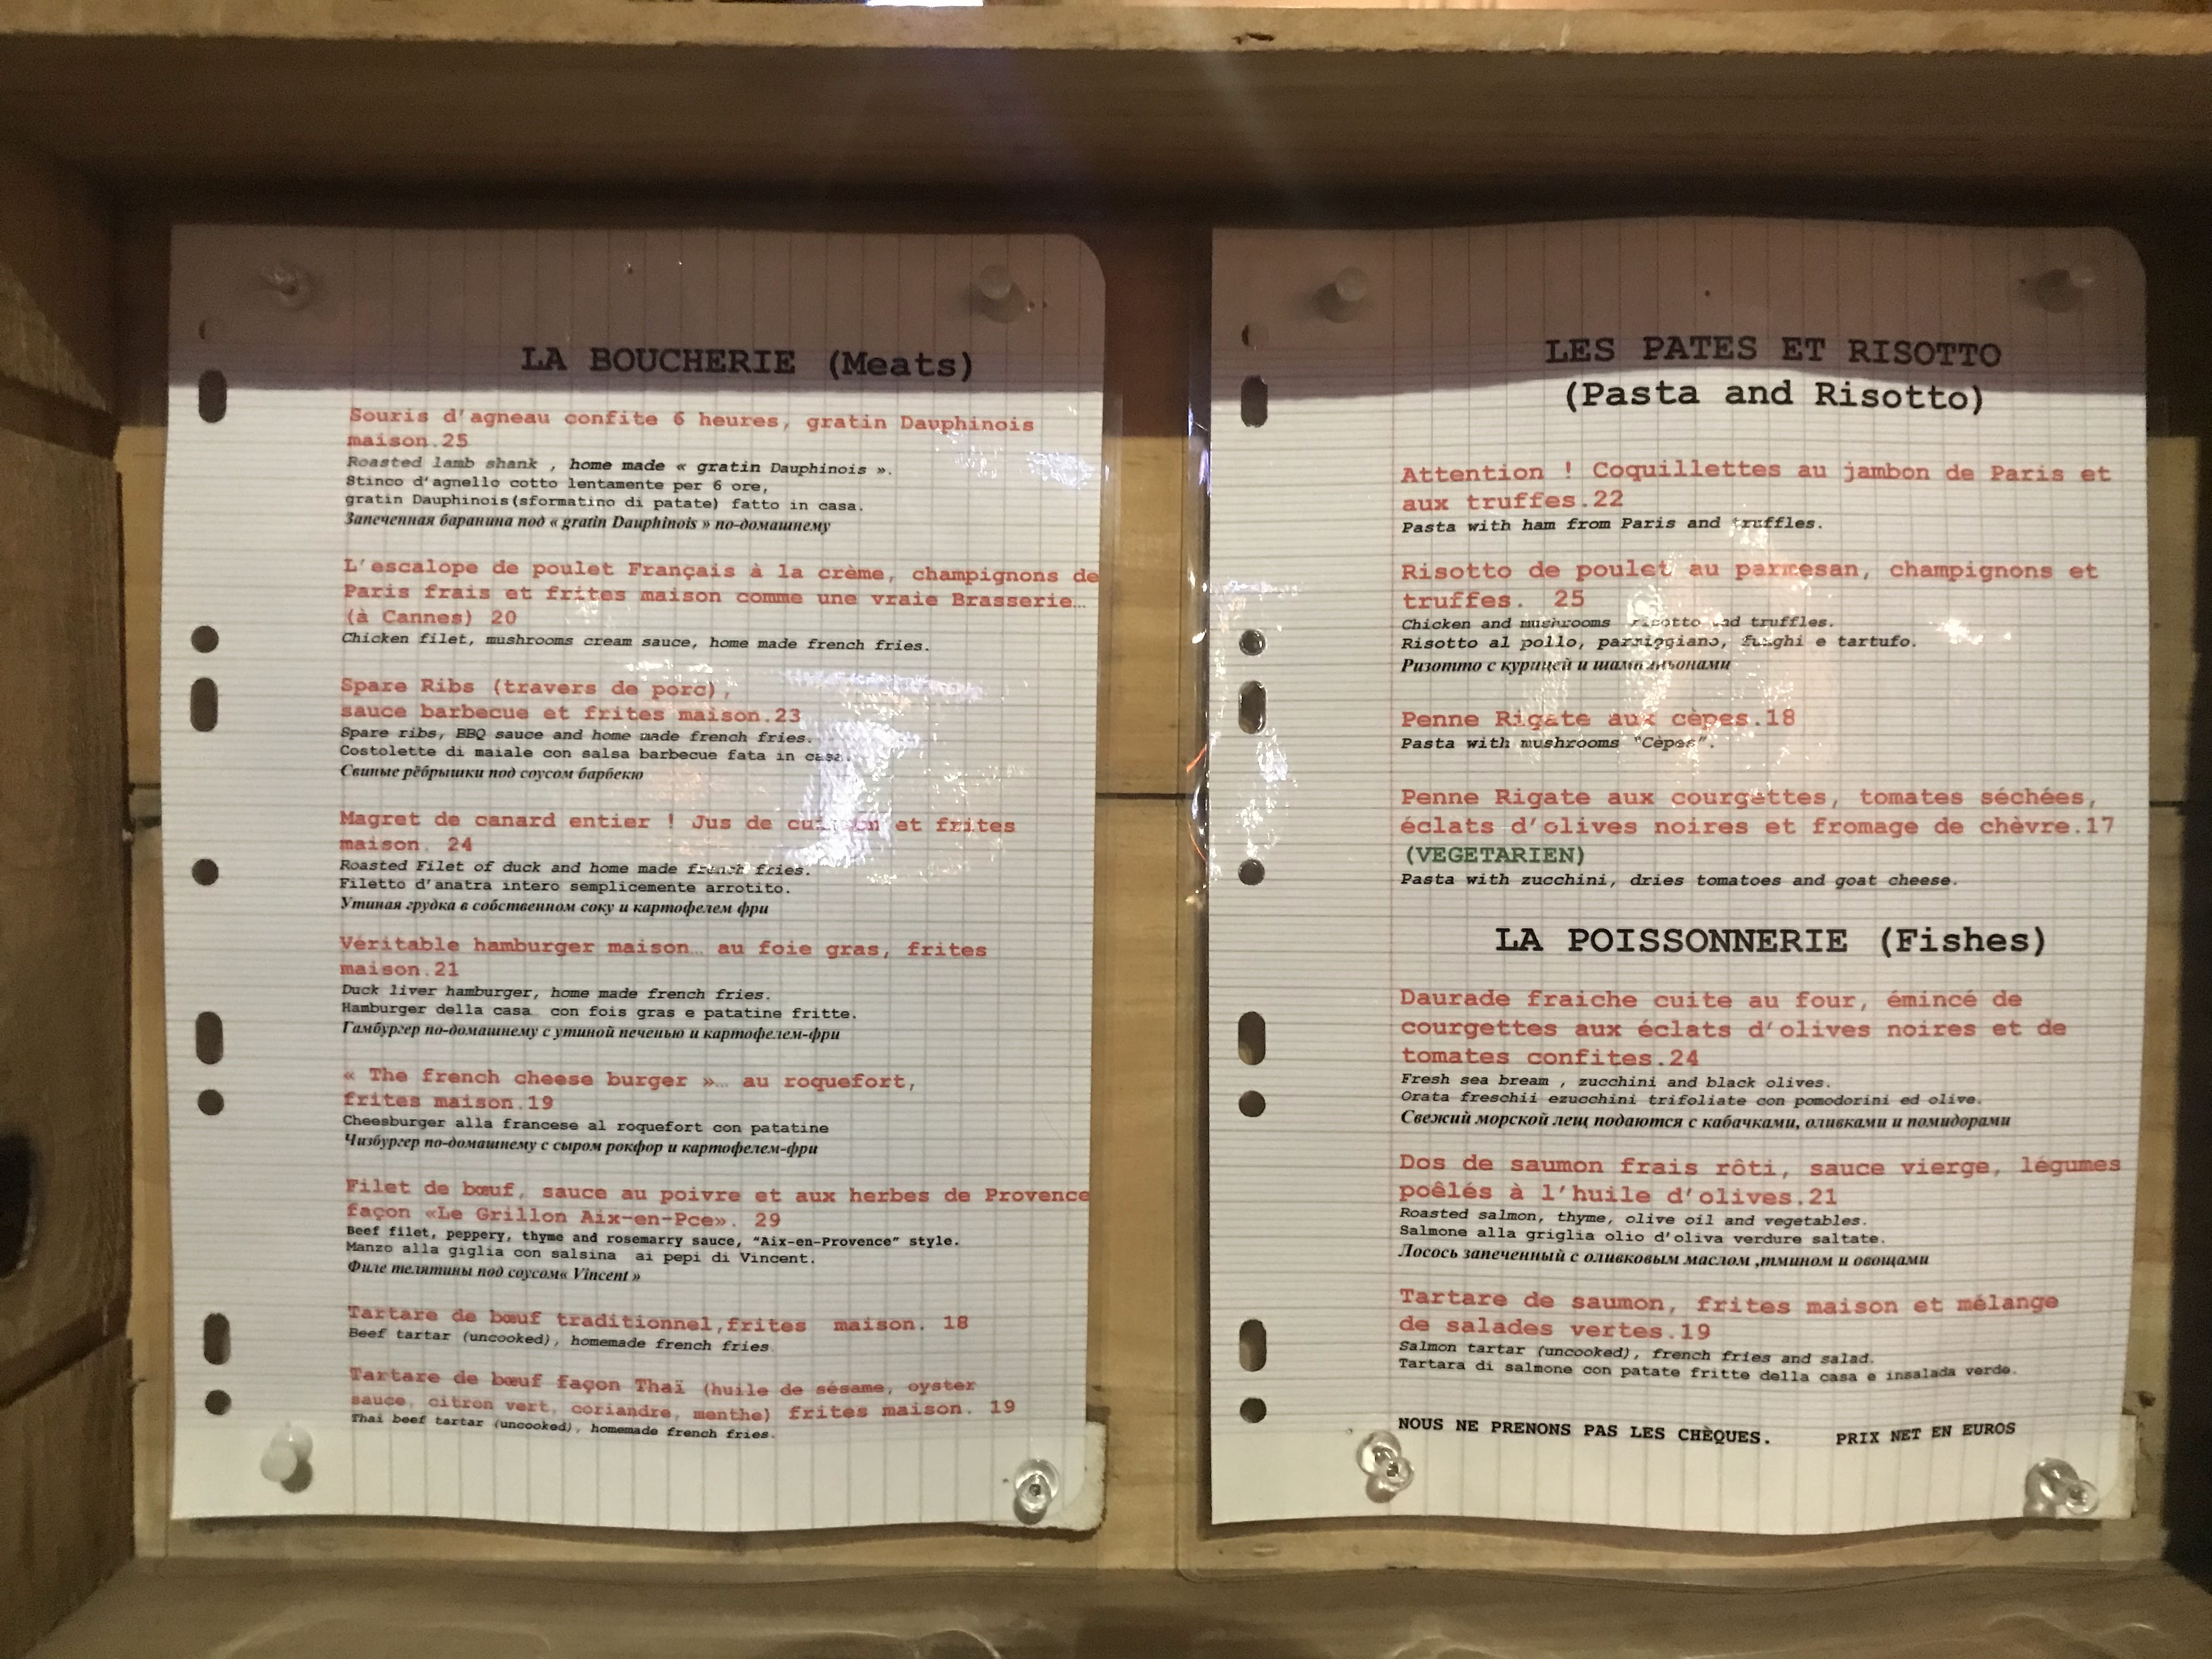 LA BOUCHERIE (Meats)
Souris d'agneau confite 6 heures, gratin Dauphinois
maison.25
Roasted lamb shank , home made « gratin Dauphinois ».
Stinco d'agnello cotto lentamente per 6 ore,
gratin Dauphinois(sformatino di patate) fatto in casa.
Запеченная баранина под « gratin Dauphinois » по-домашнему
L'escalope de poulet Français à la crème, champignons de
Paris frais et frites maison comme une vraie Brasserie…
(à Cannes) 20
Chicken filet, mushrooms cream sauce, home made french fries.
Spare Ribs (travers de porc),
sauce barbecue et frites maison.23
Spare ribs, BBQ sauce and home made french fries.
Costolette di maiale con salsa barbecue fata in casa.
Свиные рёбрышки под соусом барбекю
Magret de canard entier ! Jus de cuisson et frites
maison. 24
Roasted Filet of duck and home made french fries.
Filetto d'anatra intero semplicemente arrotito.
Утиная грудка в собственном соку и картофелем фри
Véritable hamburger maison… au foie gras, frites
maison.21
Duck liver hamburger, home made french fries.
Hamburger della casa con fois gras e patatine fritte.
Гамбургер по-домашнему с утиной печенью и картофелем-фри
« The french cheese burger »… au roquefort,
frites maison.19
Cheesburger alla francese al roquefort con patatine
Чизбургер по-домашнему с сыром рокфор и картофелем-фри
Filet de bœuf, sauce au poivre et aux herbes de Provence
façon «Le Grillon Aix-en-Pce». 29
Beef filet, peppery, thyme and rosemarry sauce, "Aix-en-Provence" style.
Manzo alla giglia con salsina ai pepi di Vincent.
Филе телятины под соусом« Vincent »
Tartare de bœuf traditionnel,frites maison. 18
Beef tartar (uncooked), homemade french fries
Tartare de bœuf façon Thaï (huile de sésame, oyster
sauce, citron vert, coriandre, menthe) frites maison. 19
Thai beef tartar (uncooked), homemade french fries.
LES PATES ET RISOTTO
(Pasta and Risotto)
Attention ! Coquillettes au jambon de Paris et
aux truffes.22
Pasta with ham from Paris and truffles.
Risotto de poulet au parmesan, champignons et
truffes. 25
Chicken and mushrooms risotto and truffles.
Risotto al pollo, parmiggiano, funghi e tartufo.
Ризотто с курицей и шампиньонами
Penne Rigate aux cèpes.18
Pasta with mushrooms "Cèpes".
Penne Rigate aux courgettes, tomates séchées,
éclats d'olives noires et fromage de chèvre.17
(VEGETARIEN)
Pasta with zucchini, dries tomatoes and goat cheese.
LA POISSONNERIE (Fishes)
Daurade fraiche cuite au four, émincé de
courgettes aux éclats d'olives noires et de
tomates confites.24
Fresh sea bream , zucchini and black olives.
Orata freschii ezucchini trifoliate con pomodorini ed olive.
Свежий морской лещ подаются с кабачками, оливками и помидорами
Dos de saumon frais rôti, sauce vierge, légumes
poêlés à l'huile d'olives.21
Roasted salmon, thyme, olive oil and vegetables.
Salmone alla griglia olio d'oliva verdure saltate.
Лосось запеченный с оливковым маслом ,тмином и овощами
Tartare de saumon, frites maison et mélange
de salades vertes.19
Salmon tartar (uncooked), french fries and salad.
Tartara di salmone con patate fritte della casa e insalada verde.
NOUS NE PRENONS PAS LES CHÈQUES. PRIX NET EN EUROS